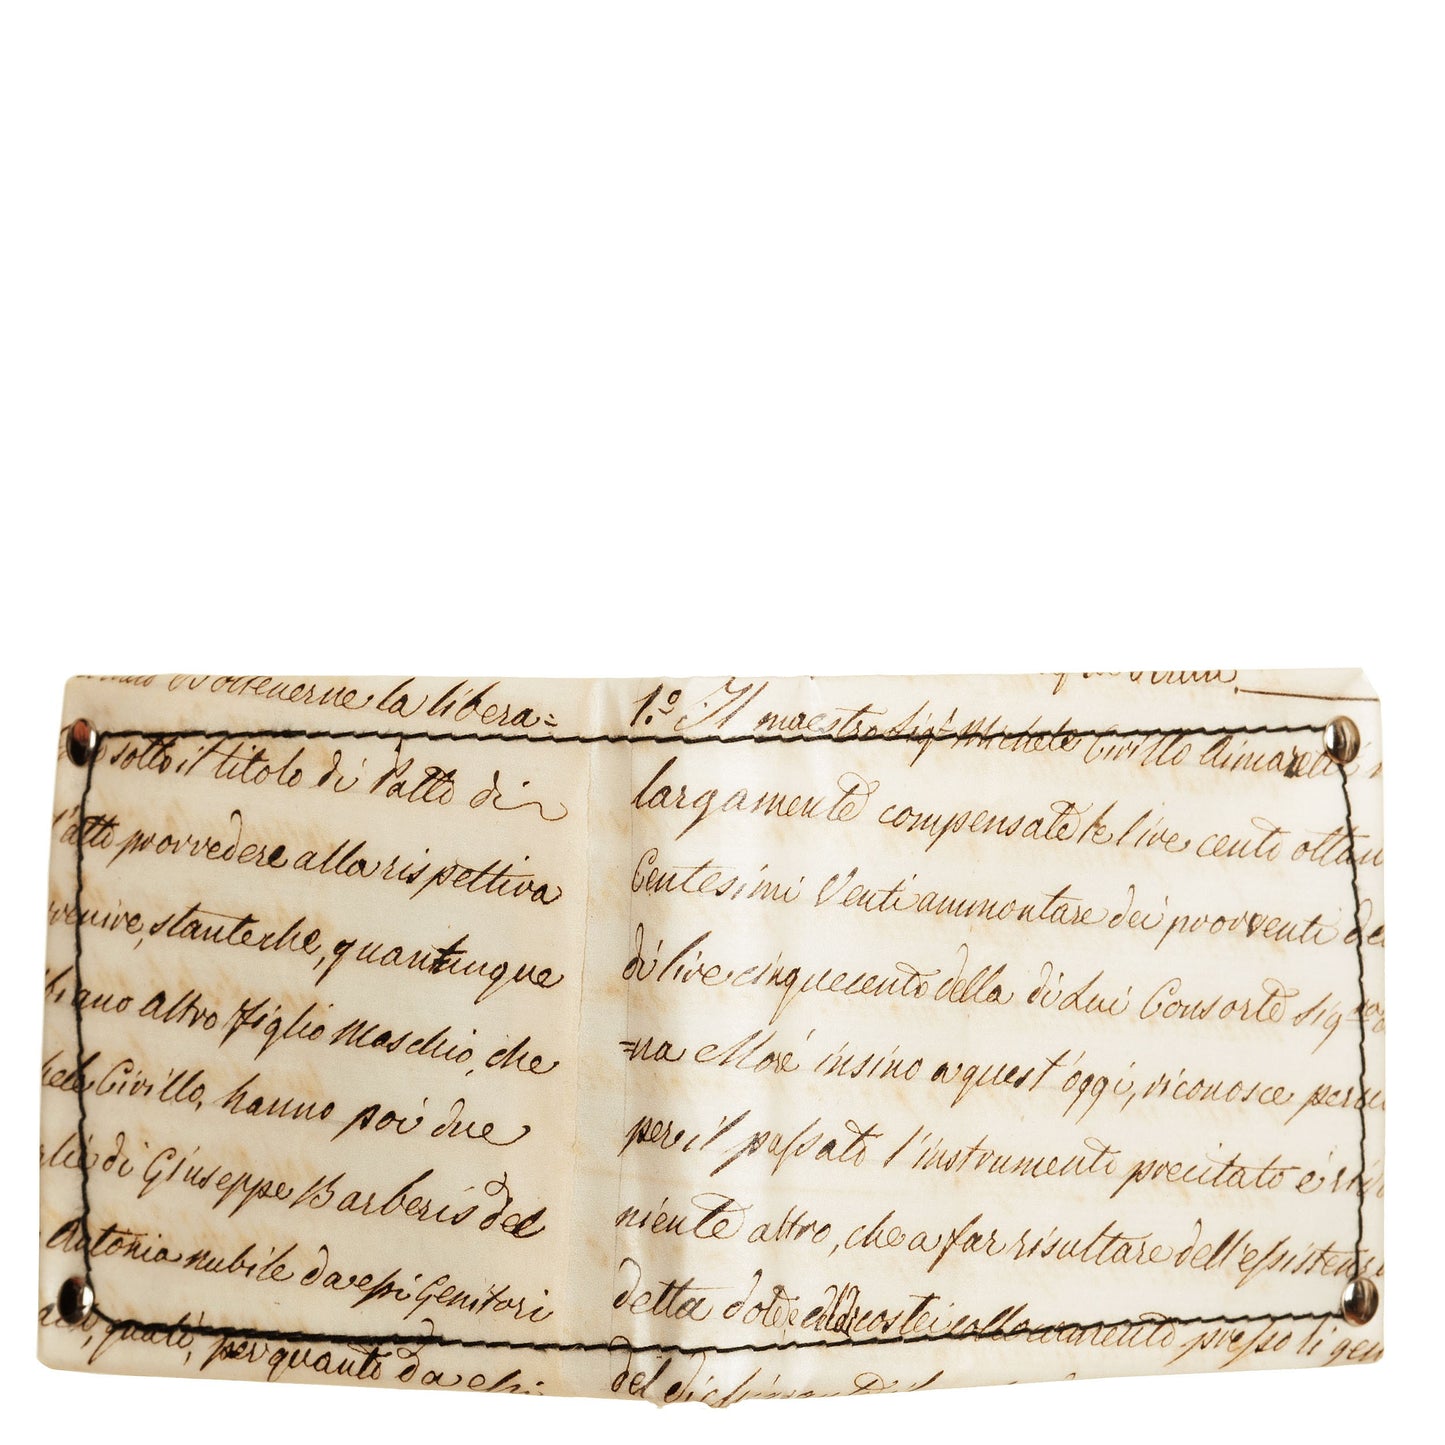 ottenerne la libera=
sotto il titolo di Patto di
fatto provvedere alla rispettiva
venire, stanteche, quantunque
altro figlio Maschio, che
Civillo, hanno poi due
di Giuseppe Barberis del
Antonia nubile da eſsi Genitori
quali, per quanto da eſsi
1.º Il maestro Sigr Michele Civillo Aimaretti
largamente compensate le lire cento ottan
Centesimi Venti ammontare dei provventi
di lire cinquecento della di Lui Consorte Sig
=na Moré insino a quest'oggi, riconosce
per il paſsato l'instrumento precitato é
niente altro, che a far risultare dell'eſsistenza
detta dote, e di costei collocamento preſso li
del